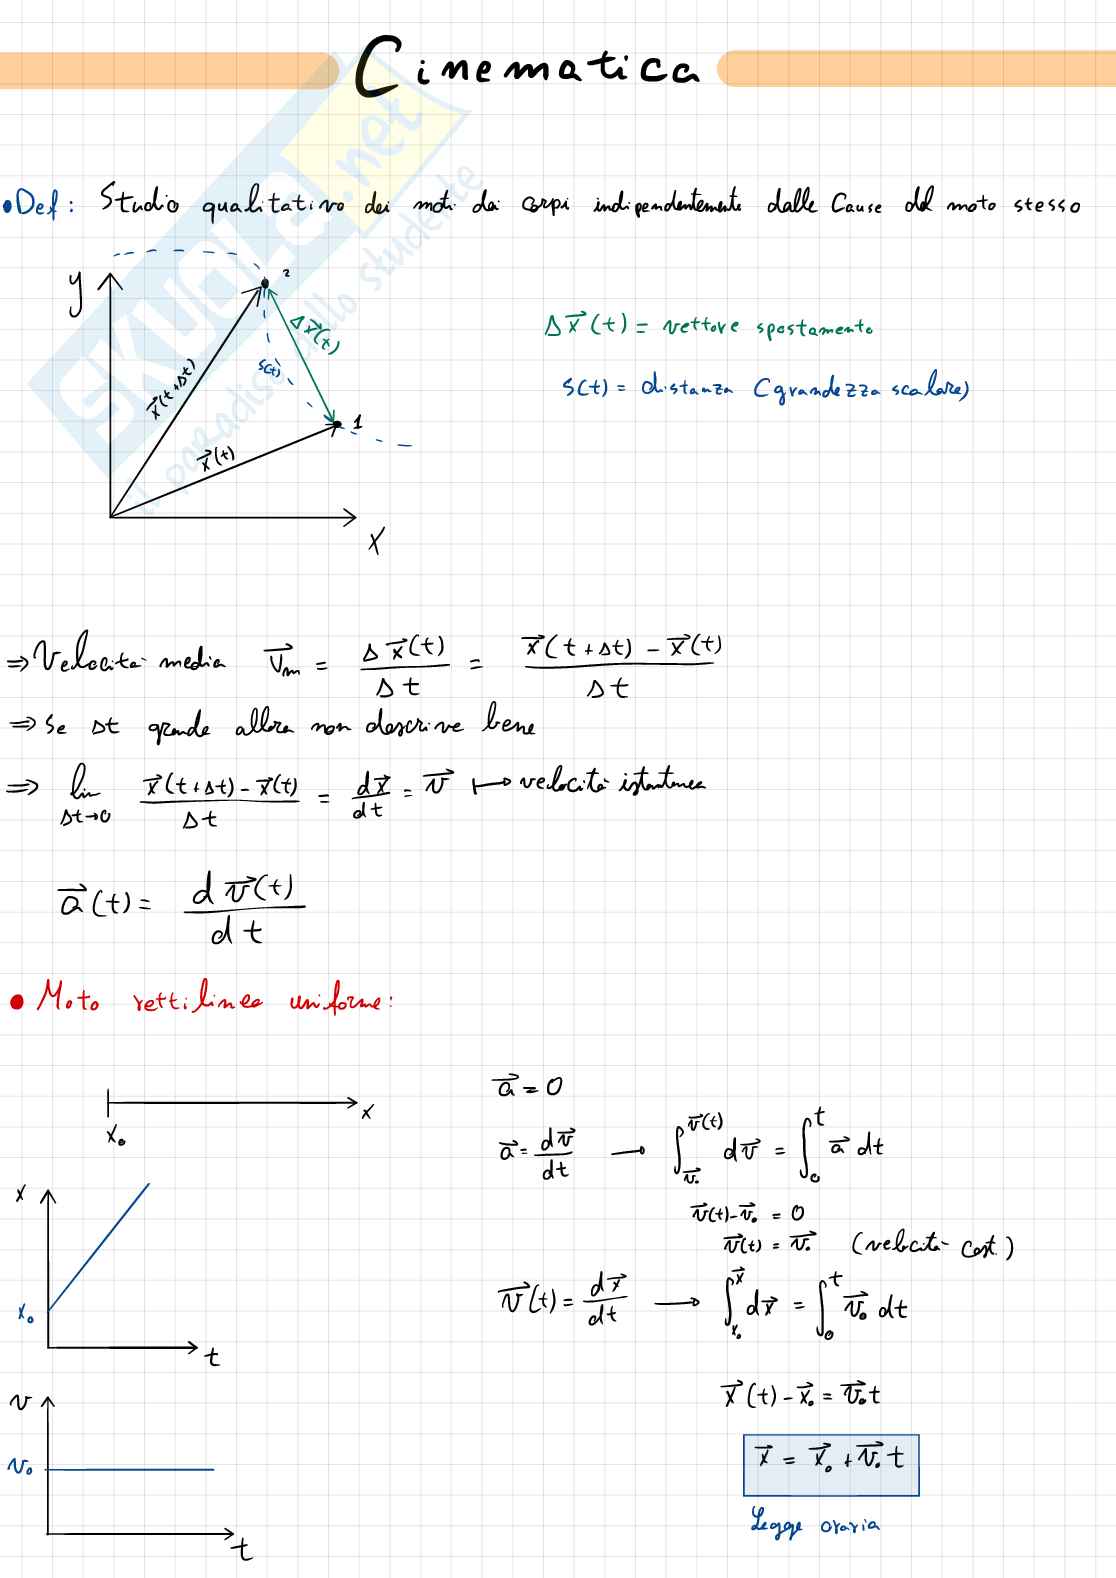 Cinematica
• Def: Studio qualitativo dei moti dei corpi indipendentemente dalle Cause del moto stesso
y
2
Δx⃗(t)
s(t)
x⃗(t+Δt)
1
x⃗(t)
x
Δx⃗(t) = vettore spostamento
s(t) = distanza (grandezza scalare)
SKUOLA.net
il paradiso dello studente
⇒ Velocità media v⃗m = Δx⃗(t)/Δt = x⃗(t+Δt) - x⃗(t)/Δt
⇒ se Δt grande allora non descrive bene
⇒ lim Δt→0 x⃗(t+Δt) - x⃗(t)/Δt = dx⃗/dt = v⃗ ↦ velocità istantanea
a⃗(t) = dv⃗(t)/dt
• Moto rettilineo uniforme:
x₀ x
a⃗ = 0
a⃗ = dv⃗/dt → ∫_{v⃗₀}^{v⃗(t)} dv⃗ = ∫_0^t a⃗ dt
v⃗(t) - v⃗₀ = 0
v⃗(t) = v⃗₀ (velocità cost.)
v⃗(t) = dx⃗/dt → ∫_{x₀}^{x⃗} dx⃗ = ∫_0^t v⃗₀ dt
x⃗(t) - x⃗₀ = v⃗₀t
x⃗ = x⃗₀ + v⃗₀ t
Legge oraria
x
x₀
t
v
v₀
t